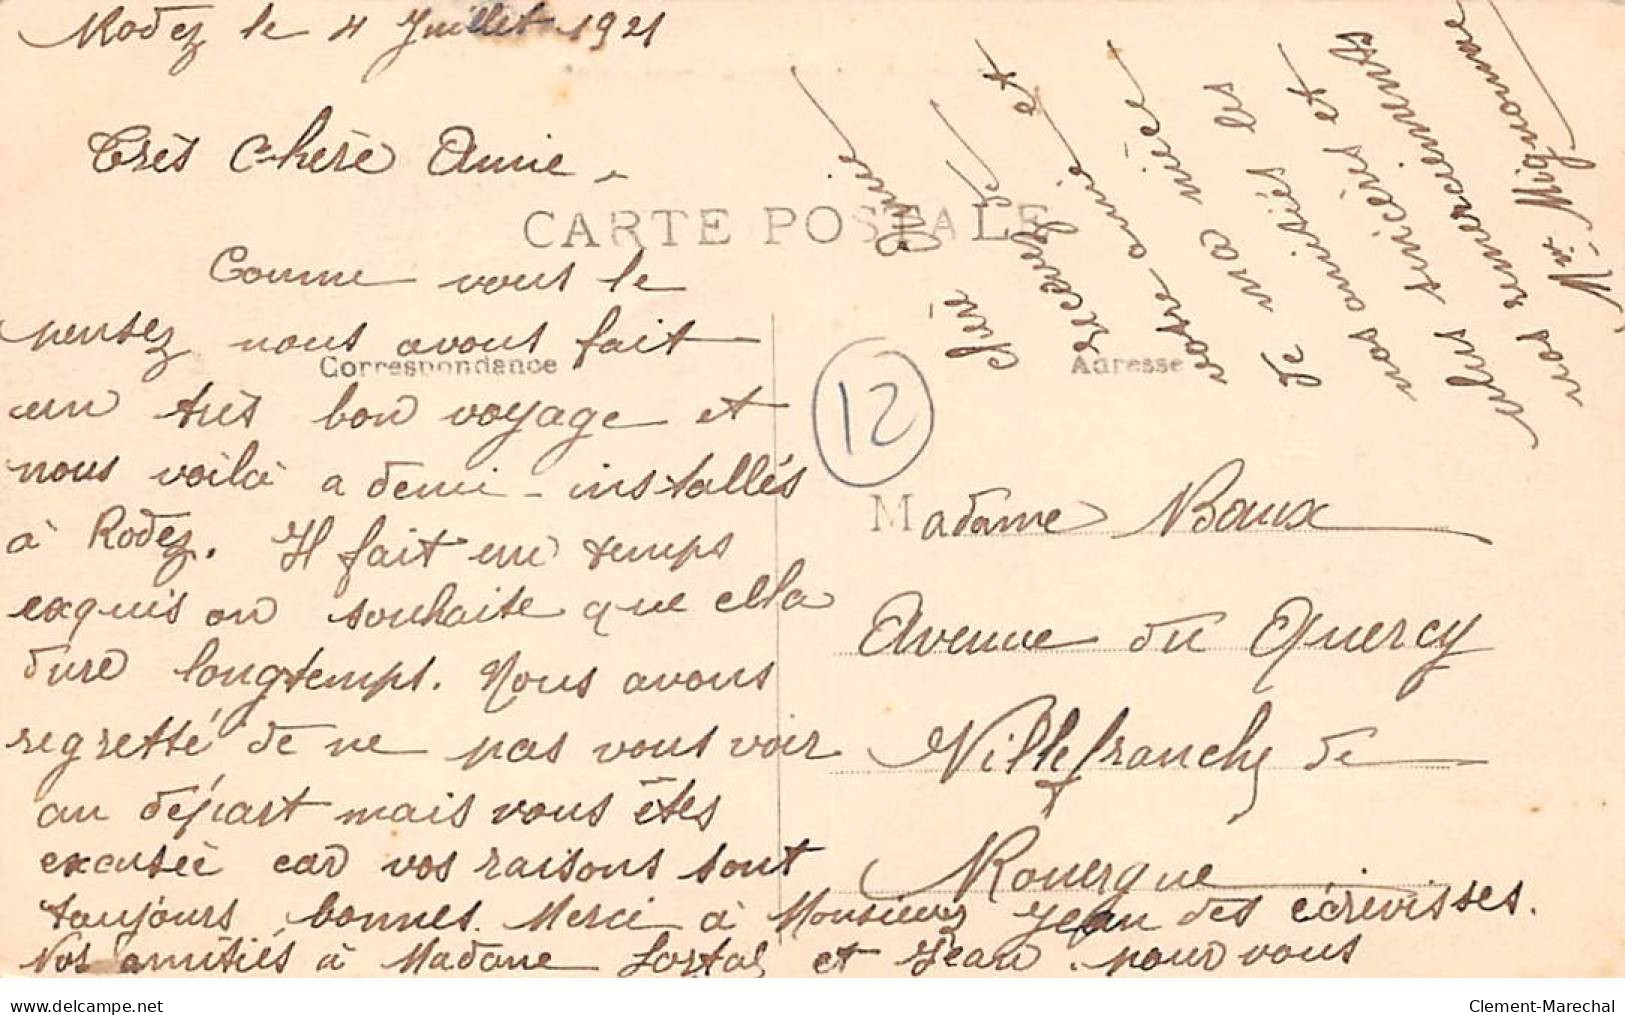 Rodez le 4 Juillet 1921
Très Chère Amie,
CARTE POSTALE
Comme vous le
pensez nous avons fait
Correspondance
un très bon voyage et
nous voilà a demi-installés
à Rodez. Il fait un temps
exquis on souhaite que ella
dure longtemps. Nous avons
regretté de ne pas vous voir
au départ mais vous êtes
excusée car vos raisons sont
toujours bonnes. Merci à Monsieur Jean des écrévisses.
Nos amitiés à Madame Lortal et Jean. pour vous
chère Amie
recevez de
votre amie et
de ma nièce
nos amitiés les
plus sincères et
nos remerciements
Mme Mignonac
12
Adresse
Madame Boux
Avenue du Quercy
Villefranche de
Rouergue
delcampe.net
Clement-Marechal